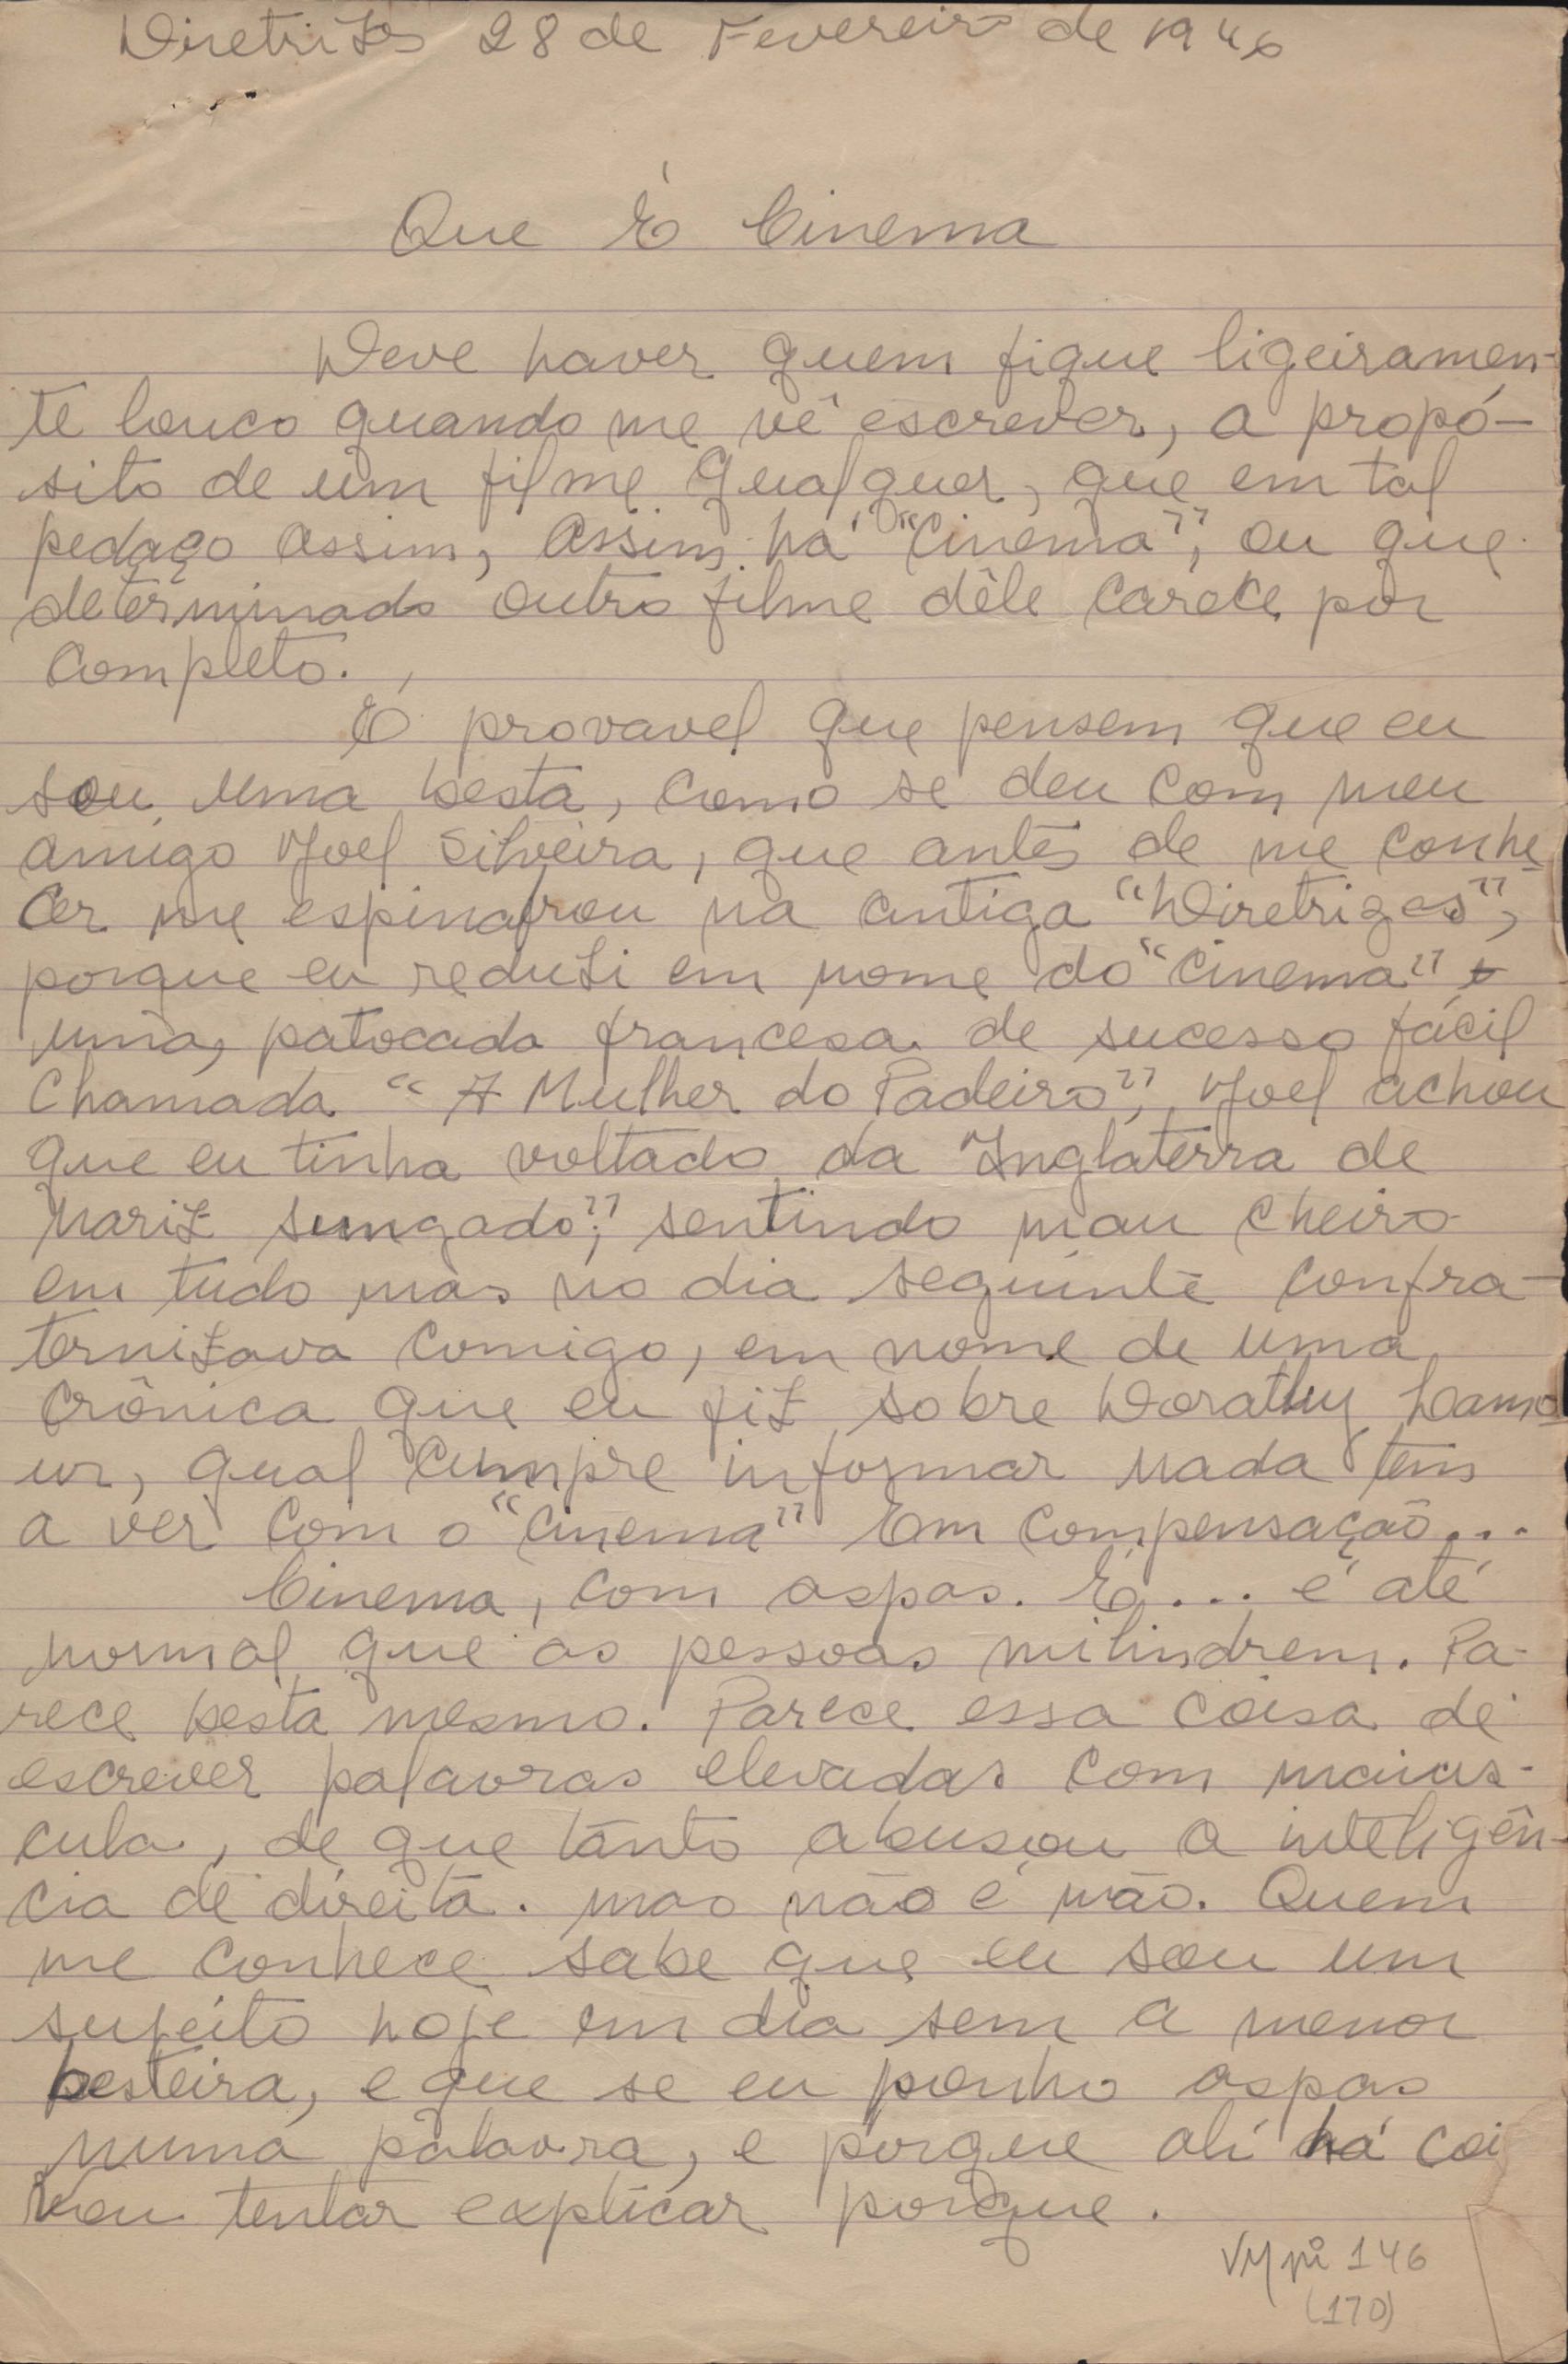 Diretrizes 28 de Fevereiro de 1946
Que É Cinema
Deve haver quem fique ligeiramen-
te louco quando me vê escrever, a propó-
sito de um filme qualquer, que em tal
pedaço assim, assim há "cinema", ou que
determinado outro filme dêle carece por
completo.
É provavel que pensem que eu
sou uma besta, como se deu com meu
amigo Joel Silveira, que antes de me conhe
cer me espinafrou na antiga "Diretrizes",
porque eu reduzi em nome do "cinema" a
uma patocada francesa de sucesso fácil
chamada "A Mulher do Padeiro", Joel achou
que eu tinha voltado da Inglaterra de
nariz sungado", sentindo mau cheiro
em tudo mas no dia seguinte confra-
ternizava comigo, em nome de uma
crônica que eu fiz sobre Dorathy Lamo
ur, qual cumpre informar nada tem
a ver com o "cinema" Em compensação...
Cinema, com aspas. É... é até
normal que as pessoas milindrem. Pa-
rece besta mesmo. Parece essa coisa de
escrever palavras elevadas com maius-
cula, de que tanto abusou a inteligên-
cia de direita. mas não é não. Quem
me conhece sabe que eu sou um
sujeito hoje em dia sem a menor
besteira, e que se eu ponho aspas
numa palavra, e porque alí há coi
Vou tentar explicar porque.
VM pi 146
(170)